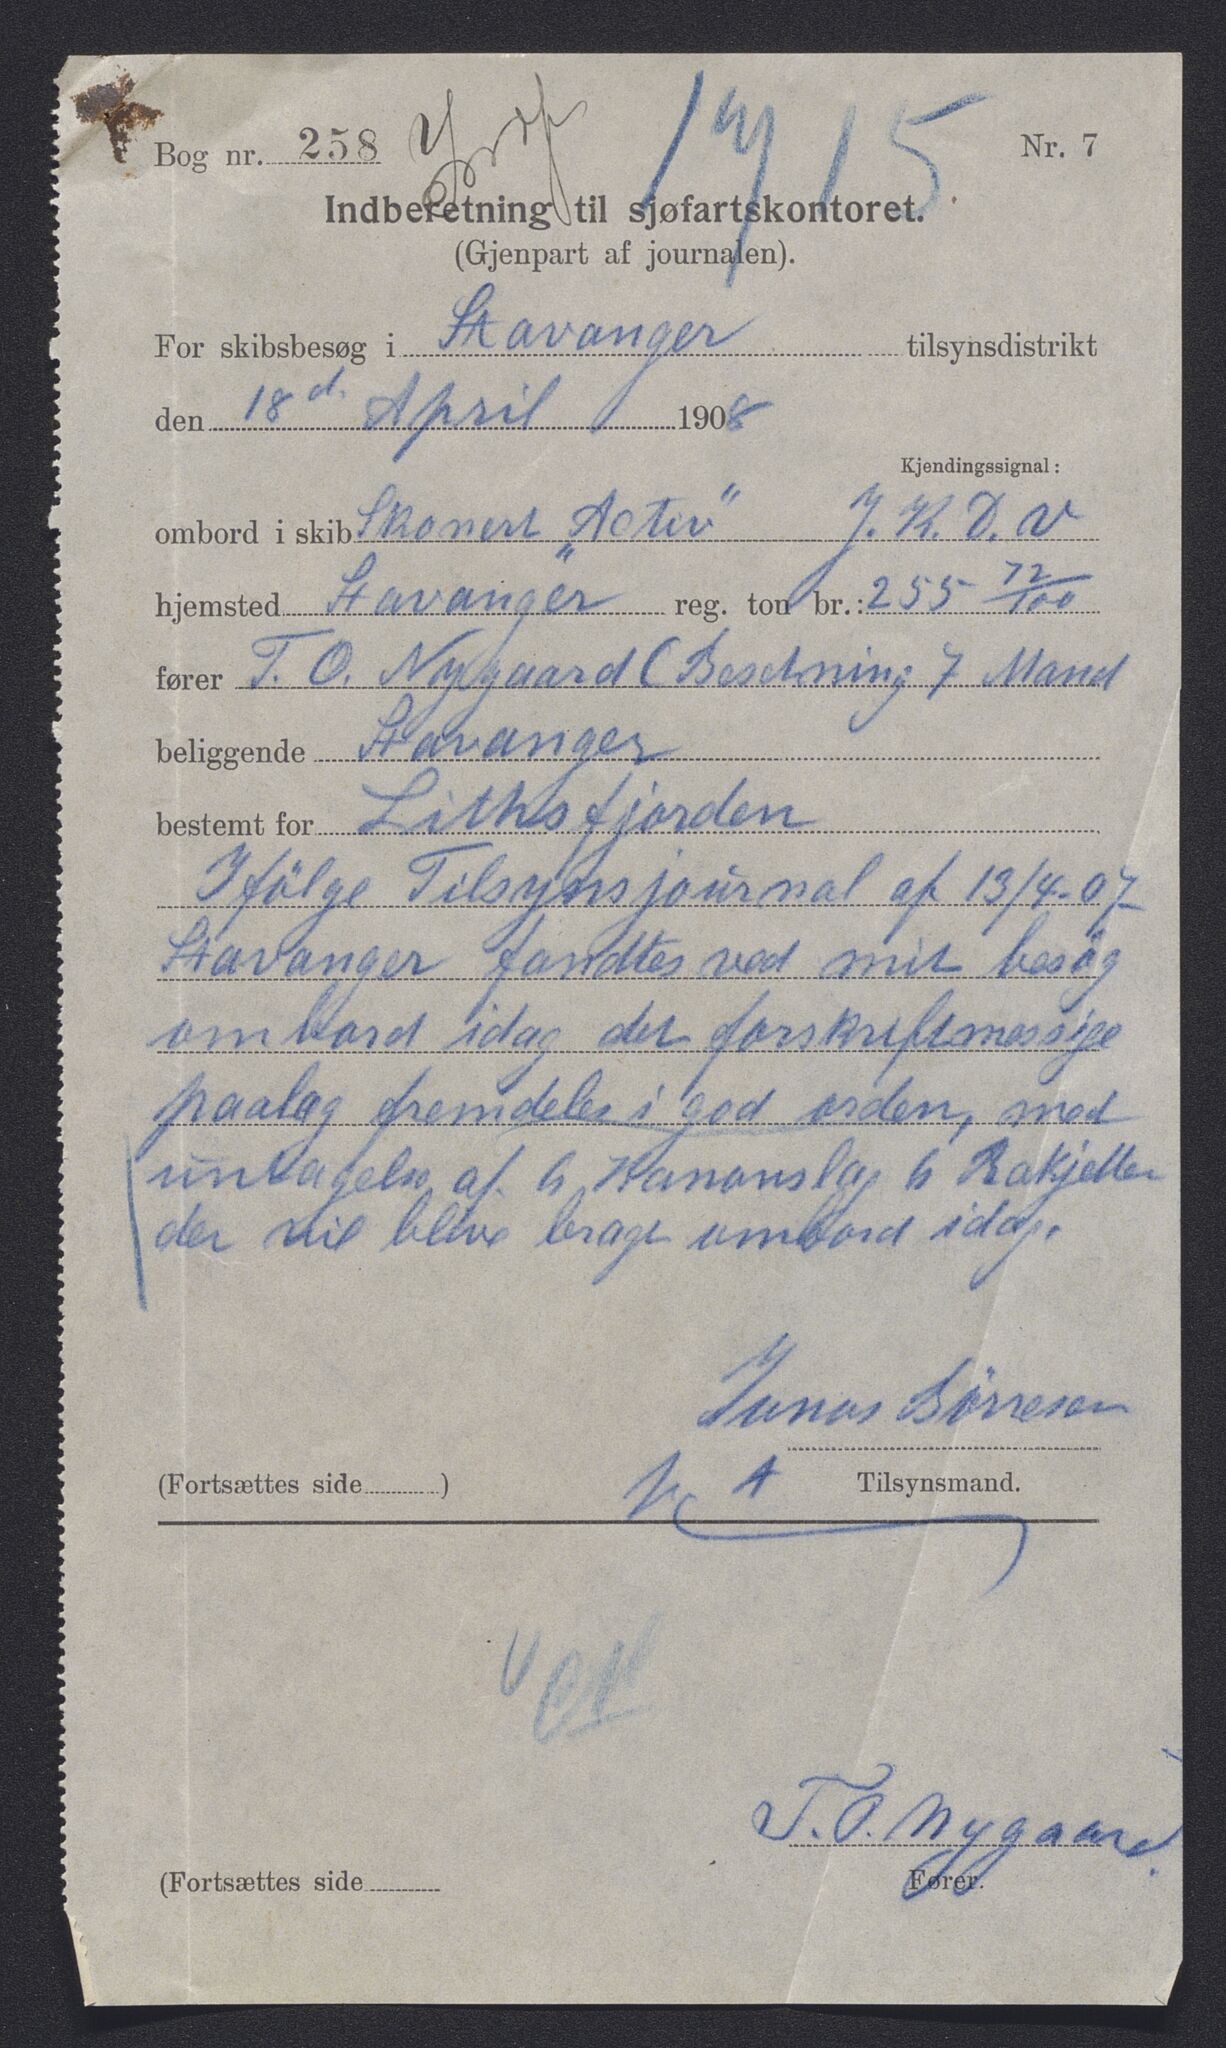 Bog nr. 258 1715 Nr. 7
Indberetning til sjøfartskontoret.
(Gjenpart af journalen).
For skibsbesøg i Stavanger tilsynsdistrikt
den 18d. April 1908
Kjendingssignal:
ombord i skib Skonert "Activ" J. K. D. V
hjemsted Stavanger reg. ton br.: 255 72/100
fører T. O. Nygaard (Besetning 7 Mand
beliggende Stavanger
bestemt for Lithsfjorden
Ifölge Tilsynsjournal af 13/4-07
Stavanger fandtes ved mit besög
ombord idag det forskriftmessige
paalæg fremdeles i god orden, med
untagelse af 6 Kanonslag 6 Rakjetter
der vil blive bragt ombord idag.
Jonas Börresen
(Fortsættes side ) Tilsynsmand.
T. O. Nygaard.
(Fortsættes side Fører.